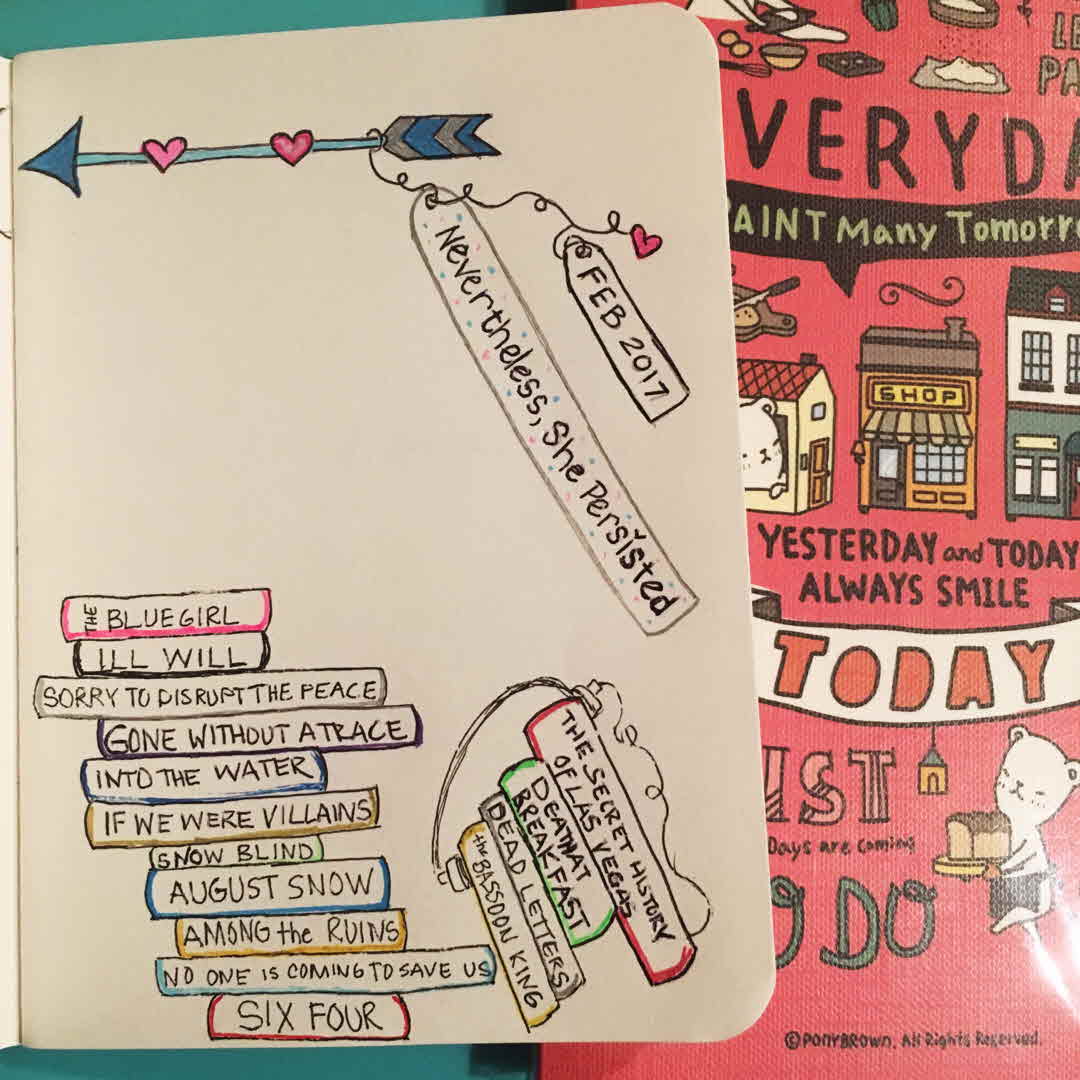 Nevertheless, She Persisted
FEB 2017
THE BLUE GIRL
ILL WILL
SORRY TO DISRUPT THE PEACE
GONE WITHOUT A TRACE
INTO THE WATER
IF WE WERE VILLAINS
SNOW BLIND
AUGUST SNOW
AMONG the RUINS
NO ONE IS COMING TO SAVE US
SIX FOUR
THE SECRET HISTORY
OF LAS VEGAS
DEATH AT
BREAKFAST
DEAD LETTERS
the BASSOON KING
LE
PA
VERYDA
PAINT Many Tomorro
SHOP
YESTERDAY and TODAY
ALWAYS SMILE
TODAY
IST
Days are coming
O DO
©PONYBROWN. All Rights Reserved.